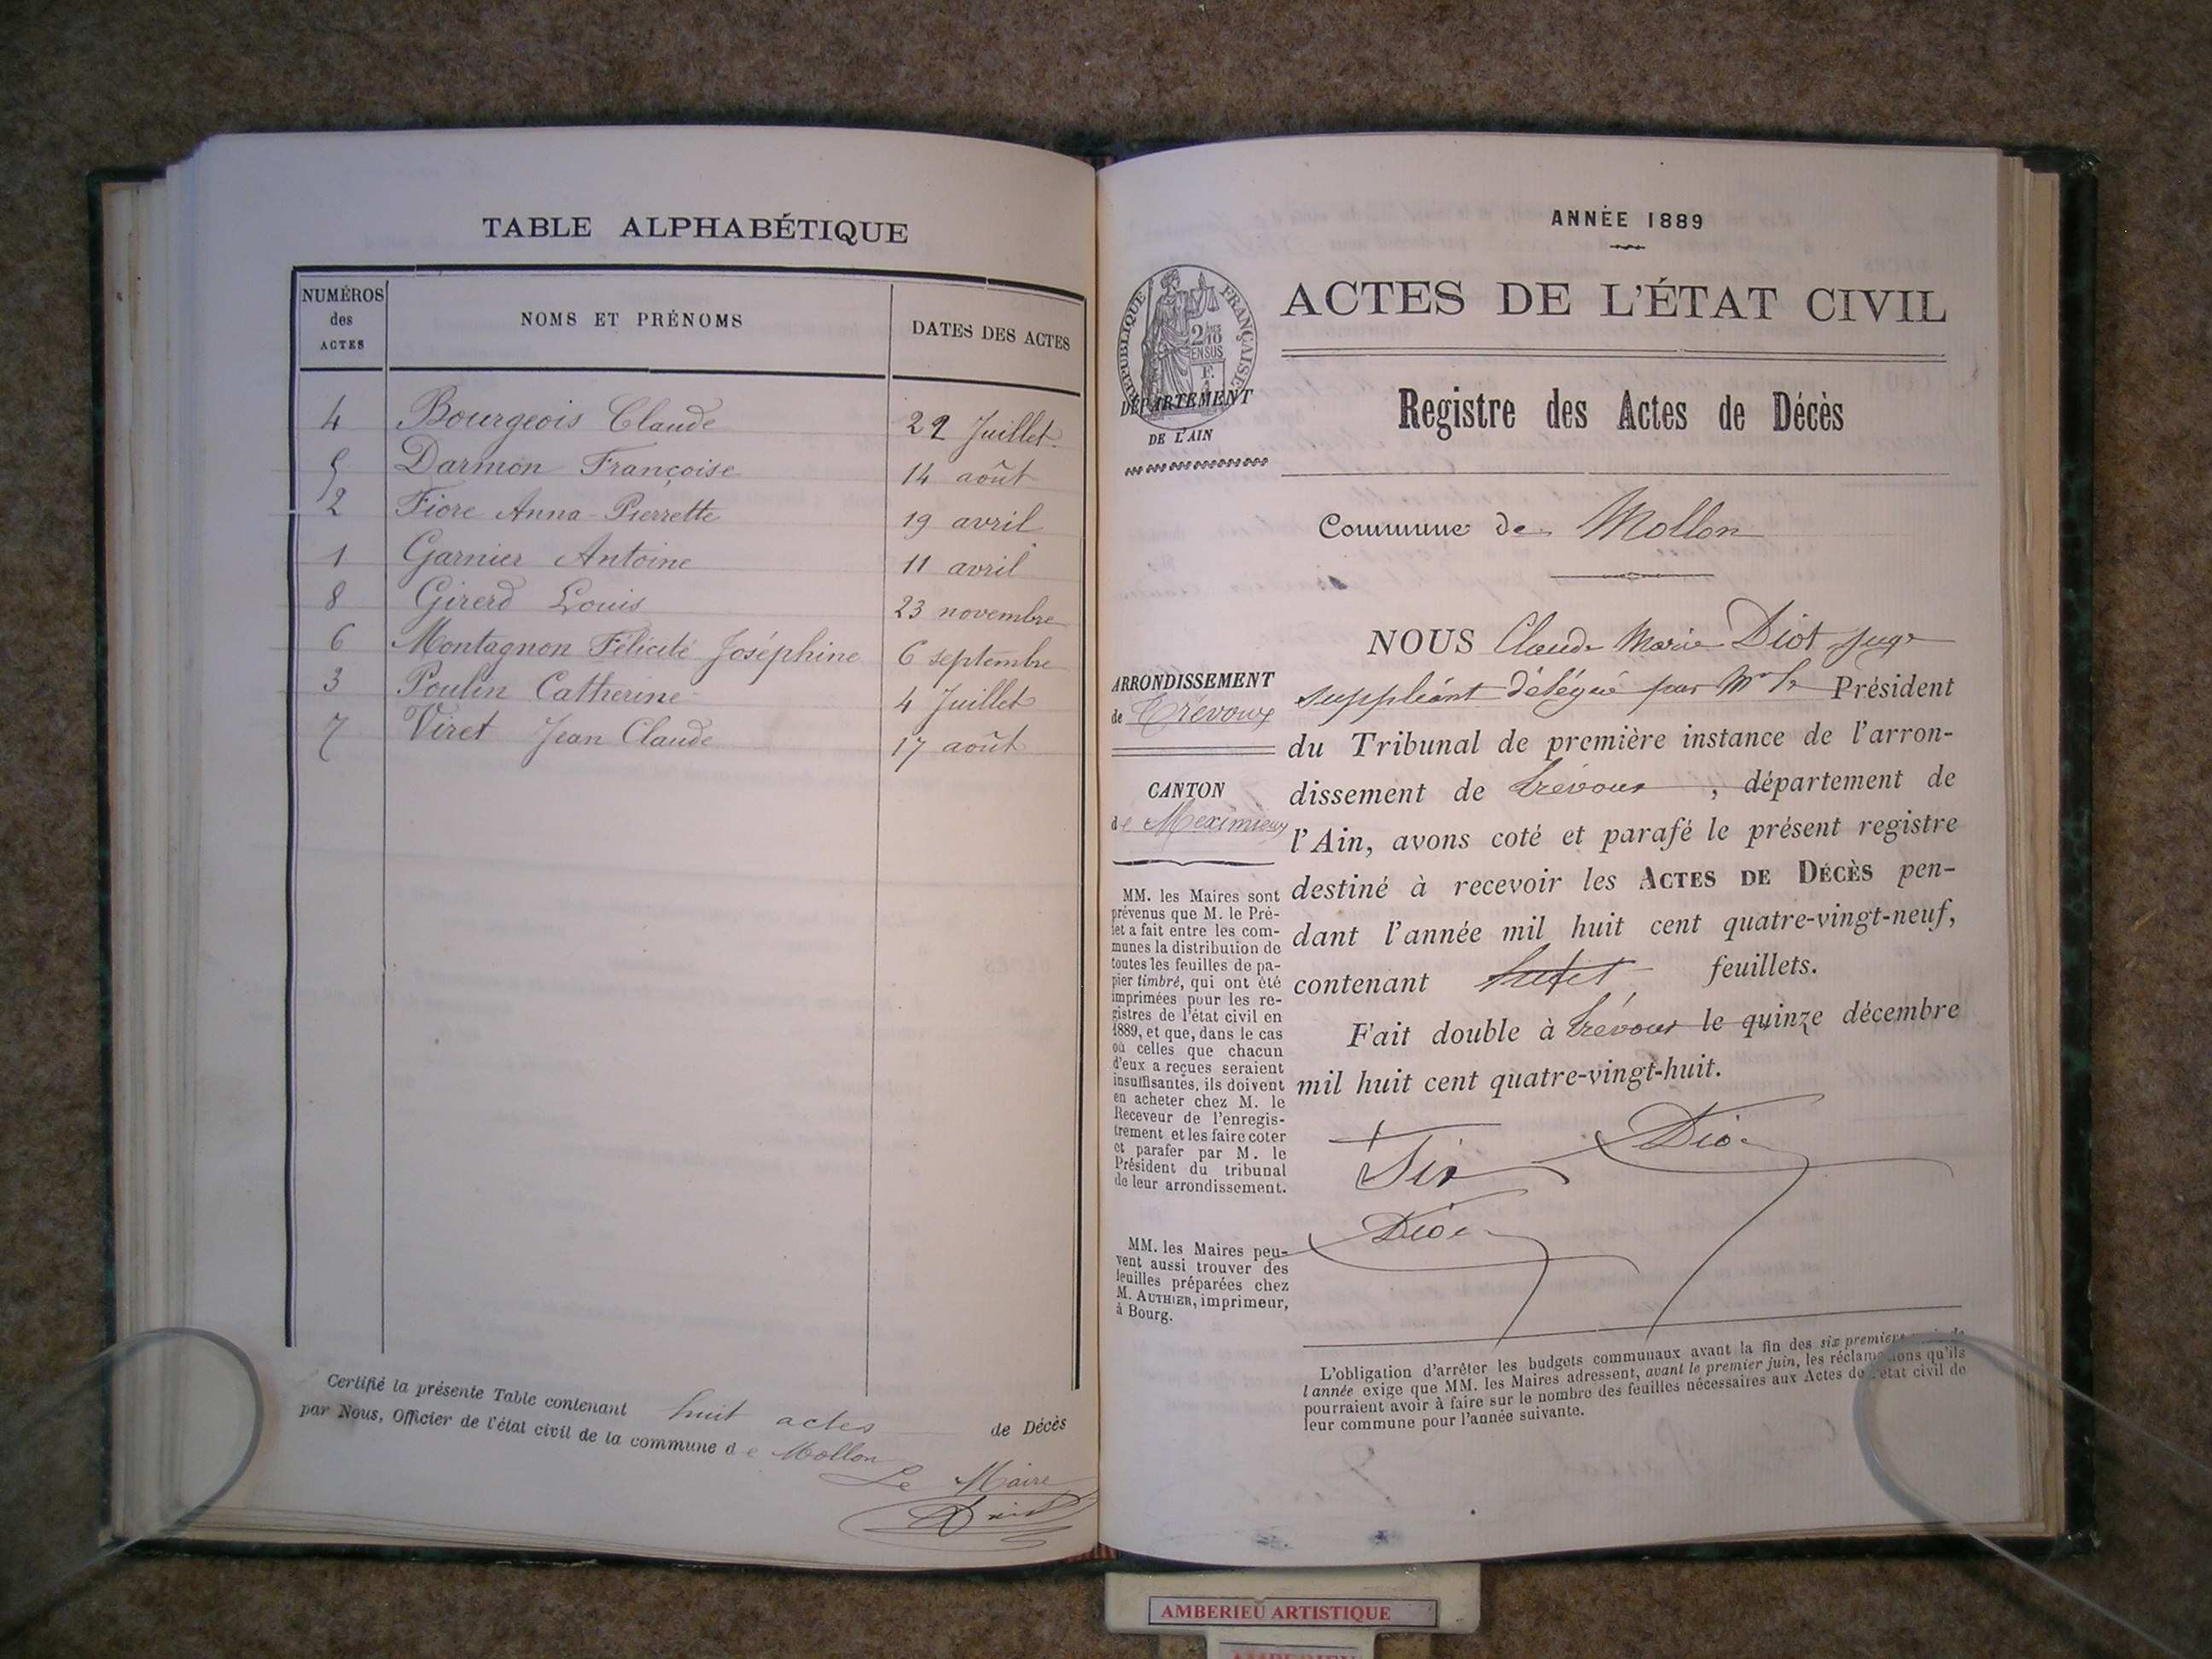 TABLE ALPHABÉTIQUE
NUMÉROS des ACTES
NOMS ET PRÉNOMS
DATES DES ACTES
4 Bourgeois Claude 22 Juillet
5 Darmon Françoise 14 août
2 Fiore Anna-Pierrette 19 avril
1 Garnier Antoine 11 avril
8 Girerd Louis 23 novembre
6 Montagnon Félicité Joséphine 6 septembre
3 Poulin Catherine 4 Juillet
7 Viret Jean Claude 17 août
Certifié la présente Table contenant huit actes de Décès
par Nous, Officier de l'état civil de la commune de Mollon
Le Maire
ANNÉE 1889
ACTES DE L'ÉTAT CIVIL
RÉPUBLIQUE FRANÇAISE
2/10
EN SUS
DÉPARTEMENT
DE L'AIN
Registre des Actes de Décès
Commune de Mollon
ARRONDISSEMENT
de Trévoux
CANTON
de Meximieux
MM. les Maires sont
prévenus que M. le Pré-
fet a fait entre les com-
munes la distribution de
toutes les feuilles de pa-
pier timbré, qui ont été
imprimées pour les re-
gistres de l'état civil en
1889, et que, dans le cas
où celles que chacun
d'eux a reçues seraient
insuffisantes, ils doivent
en acheter chez M. le
Receveur de l'enregis-
trement et les faire coter
et parafer par M. le
Président du tribunal
de leur arrondissement.
MM. les Maires peu-
vent aussi trouver des
feuilles préparées chez
M. AUTHIER, imprimeur,
à Bourg.
NOUS Claude Marie Diot juge
suppléant délégué par Mr le Président
du Tribunal de première instance de l'arron-
dissement de Trévoux, département de
l'Ain, avons coté et parafé le présent registre
destiné à recevoir les ACTES DE DÉCÈS pen-
dant l'année mil huit cent quatre-vingt-neuf,
contenant huit feuillets.
Fait double à Trévoux le quinze décembre
mil huit cent quatre-vingt-huit.
Six
Diot
Diot
L'obligation d'arrêter les budgets communaux avant la fin des six premiers mois de
l'année exige que MM. les Maires adressent, avant le premier juin, les réclamations qu'ils
pourraient avoir à faire sur le nombre des feuilles nécessaires aux Actes de l'état civil de
leur commune pour l'année suivante.
AMBERIEU ARTISTIQUE
AMBERIEU